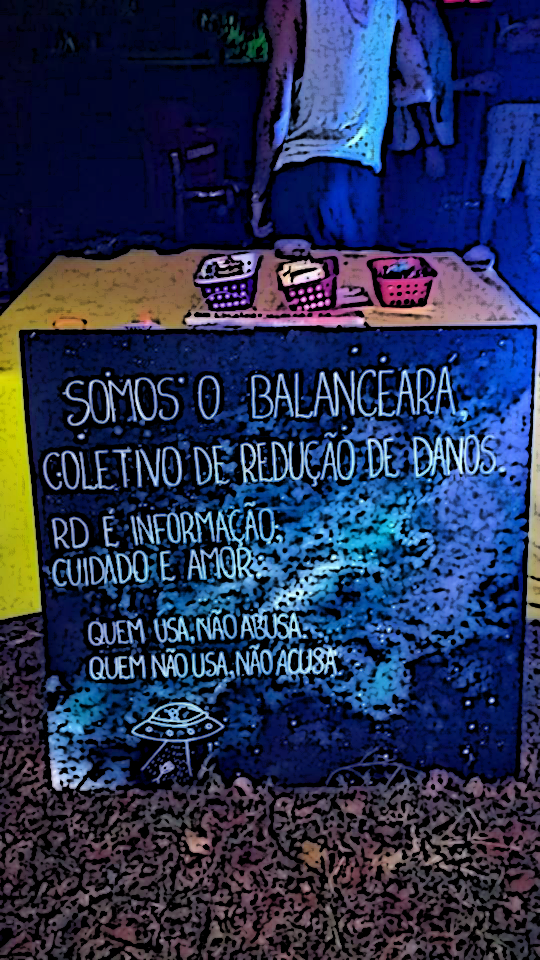 SOMOS O BALANCEARÁ,
COLETIVO DE REDUÇÃO DE DANOS.
RD É INFORMAÇÃO,
CUIDADO E AMOR.
QUEM USA, NÃO ABUSA.
QUEM NÃO USA, NÃO ACUSA.